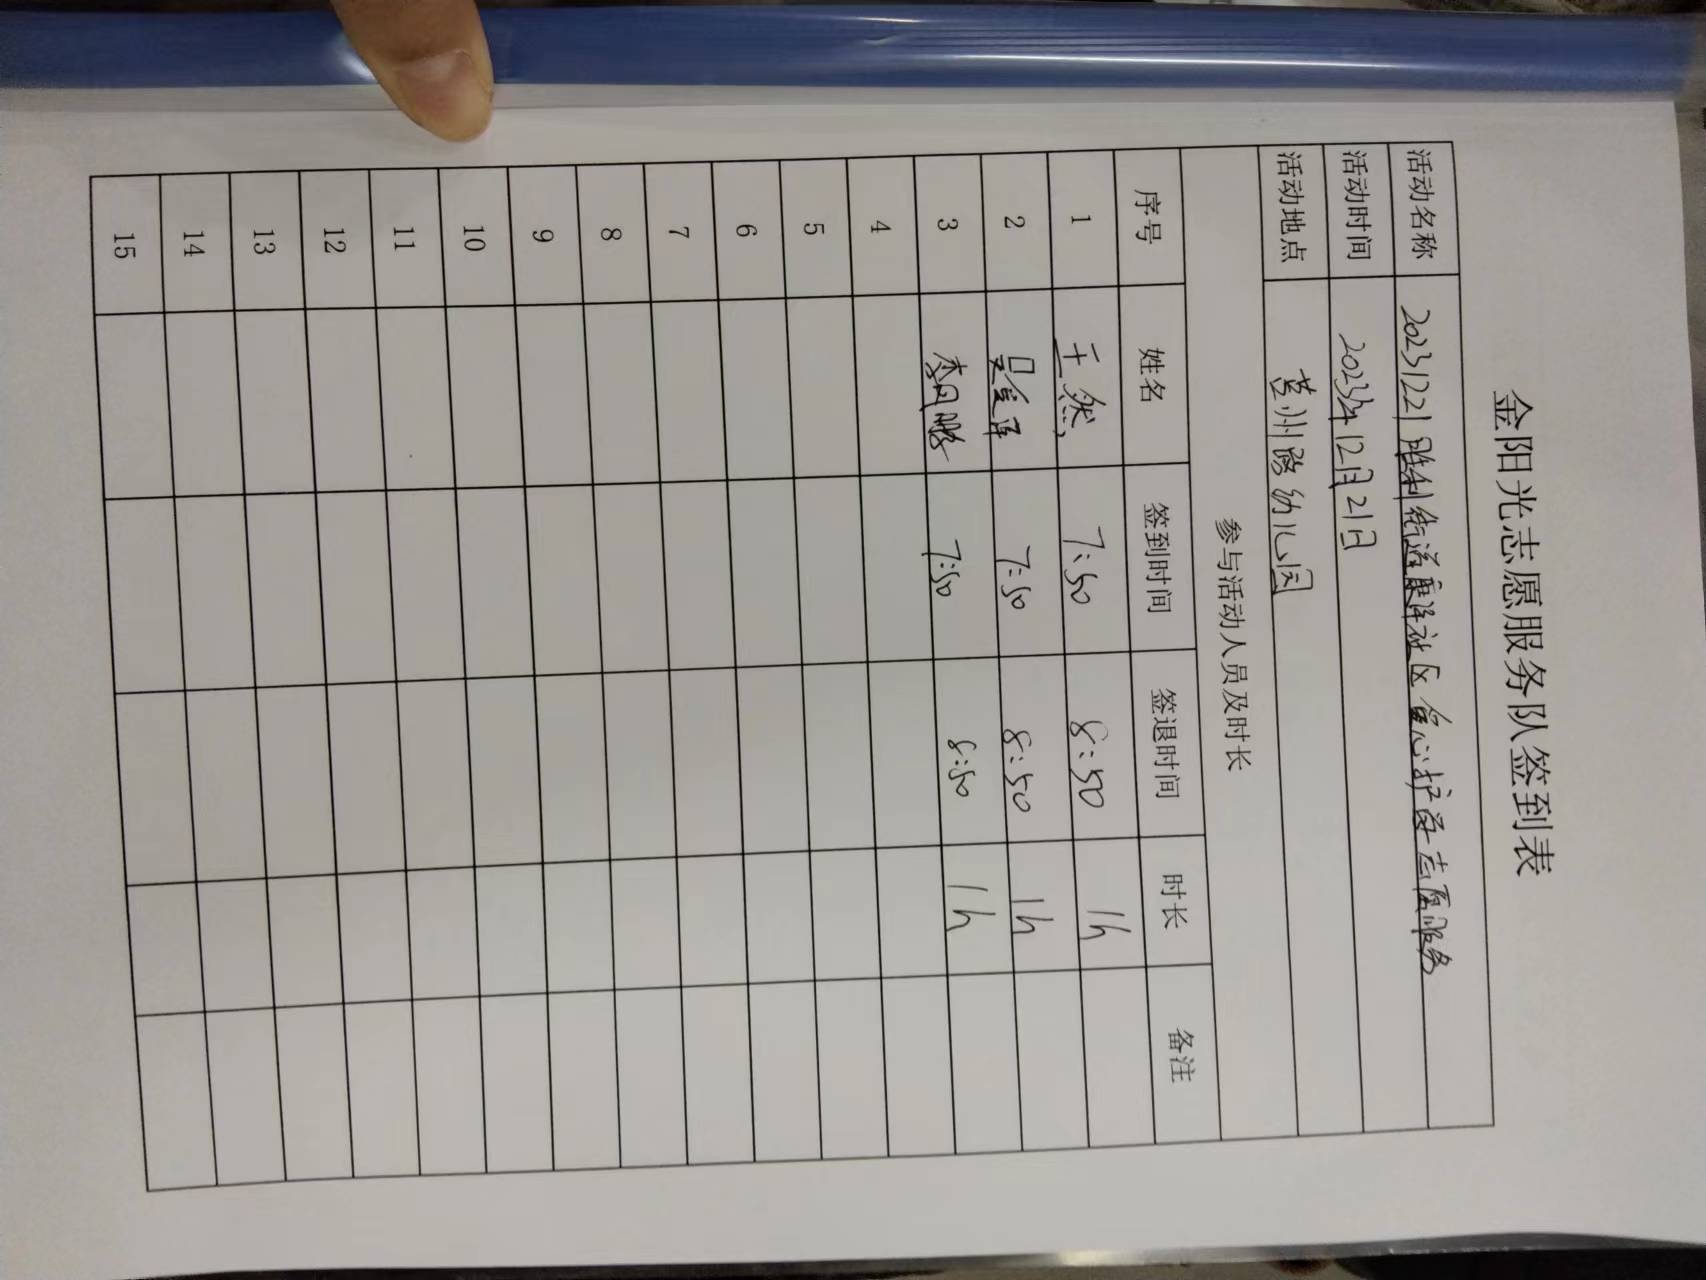 金阳光志愿服务队签到表
活动名称 20231221胜利街道康泽社区童心护学志愿服务
活动时间 2023年12月21日
活动地点 莒州路幼儿园
参与活动人员及时长
序号 姓名 签到时间 签退时间 时长 备注
1 王然 7:50 8:50 1h
2 7:50 8:50 1h
3 李同鹏 7:50 8:50 1h
4
5
6
7
8
9
10
11
12
13
14
15